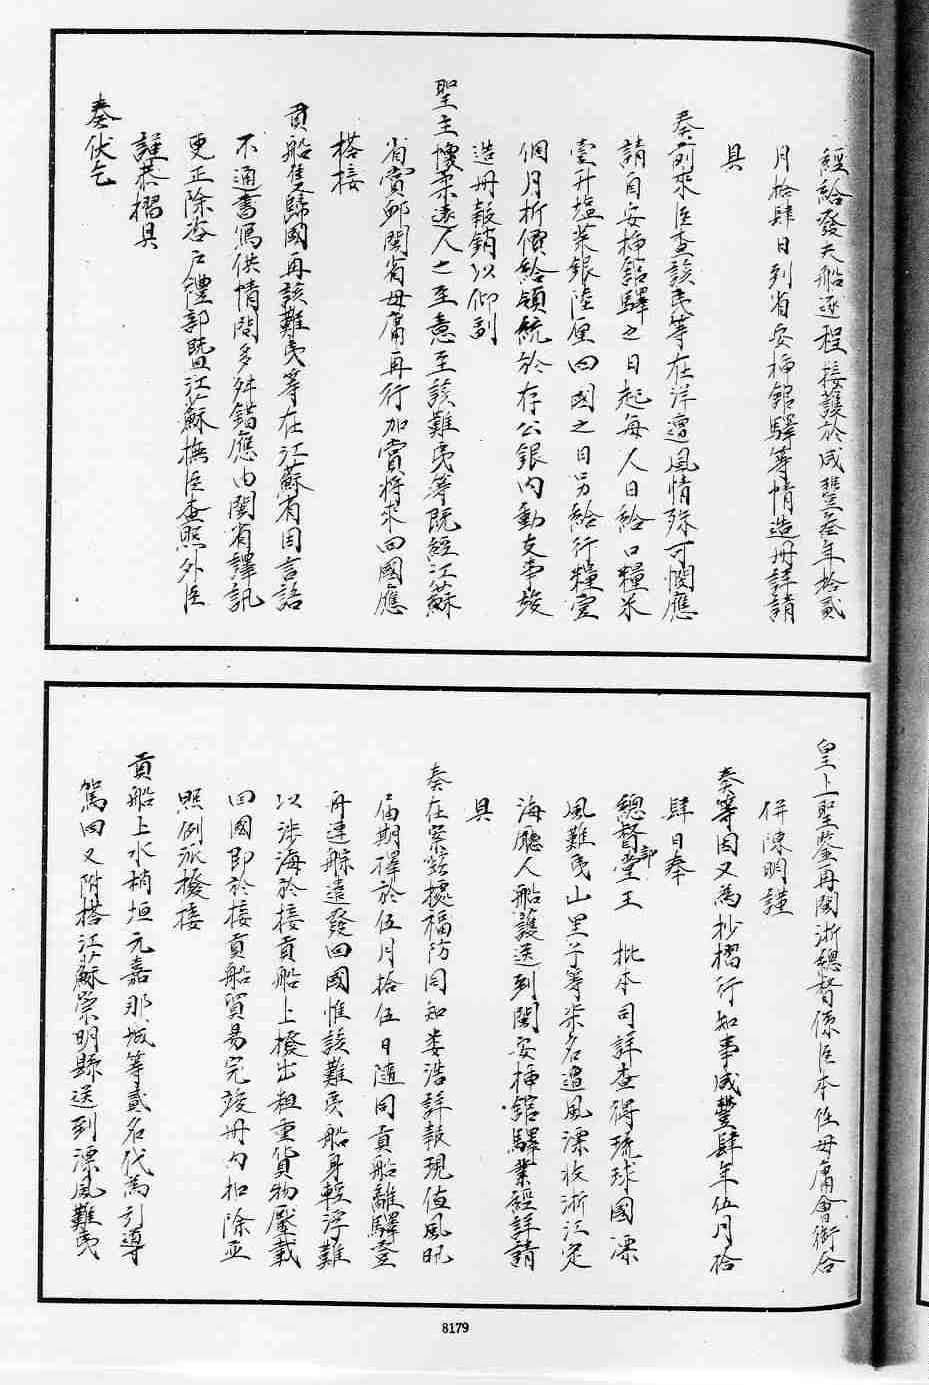 經給發夫船逐程接護於咸豐叁年拾貳
月拾肆日到省安揷館驛等情造冊詳請
具
奏前來臣查該民等在洋遭風情殊可憫應
請自安揷館驛之日起每人日給口糧米
壹升塩菜銀陸厘回國之日另給行糧壹
個月折價給領統於存公銀內動支事竣
造冊報銷以仰副
聖主懷柔遠人之至意至該難夷等旣經江蘇
省賞邮閩省毋庸再行加賞將來回國應
搭接
貢船隻歸國再該難夷等在江蘇有因言語
不通書寫供情間多舛錯應由閩省譯訊
更正除咨戶禮部曁江蘇撫臣查照外臣
謹恭摺具
奏伏乞
皇上聖鑒再閩浙總督係臣本任毋庸會銜合
併陳明謹
奏等因又為抄摺行知事咸豐肆年伍月拾
肆日奉
總督部堂王 批本司詳查得琉球國漂
風難夷山里子等柒名遭風漂收浙江定
海廳人船護送到閩安揷館驛業經詳請
具
奏在案茲據福防同知婁浩詳報現値風汛
屆期擇於伍月拾伍日隨同貢船離驛登
舟連䑸遣發回國惟該難夷船身輕浮難
以涉海於接貢船上撥出粗重貨物壓載
回國即於接貢船貿易完竣冊內扣除並
照例派撥接
貢船上水梢垣元嘉那城等貳名代為引導
駕回又附搭江蘇崇明縣送到漂風難夷
8179